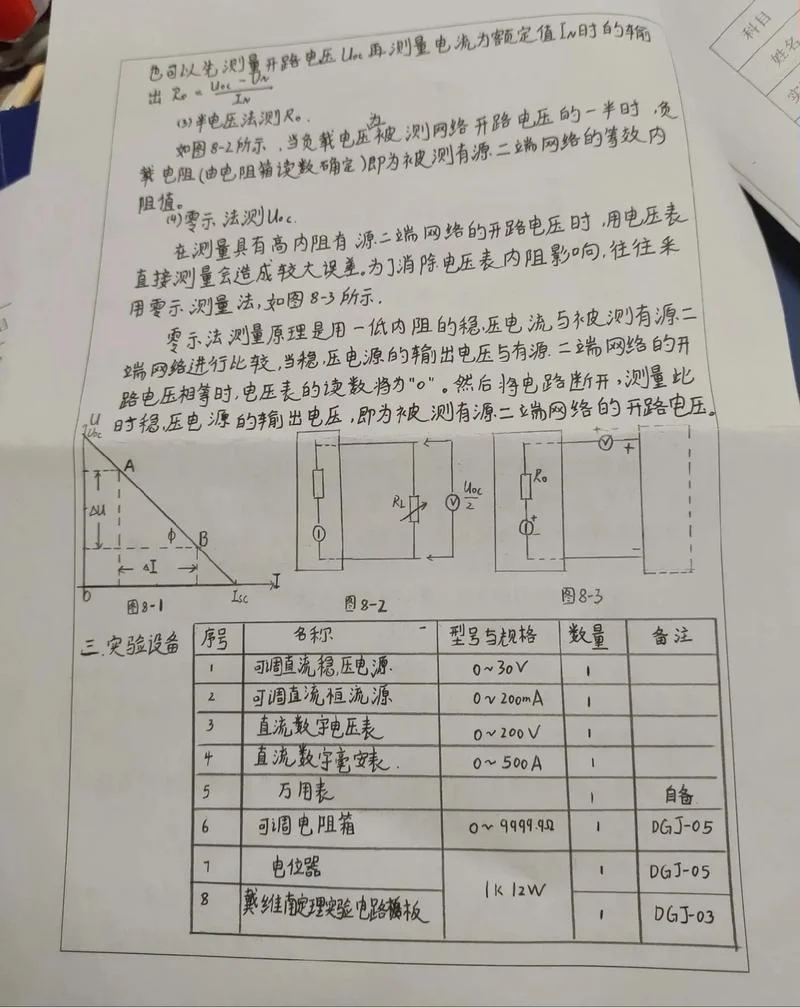 科目
姓名
实
也可以先测量开路电压Uoc再测量电流为额定值IN时的输
出 R₀ = (Uoc - UN)/IN
(3)半电压法测R₀.
如图8-2所示,当负载电压为被测网络开路电压的一半时,负
载电阻(由电阻箱读数确定)即为被测有源二端网络的等效内
阻值。
(4)零示法测Uoc.
在测量具有高内阻有源二端网络的开路电压时,用电压表
直接测量会造成较大误差。为了消除电压表内阻影响,往往采
用零示测量法,如图8-3所示.
零示法测量原理是用一低内阻的稳压电流与被测有源二
端网络进行比较,当稳压电源的输出电压与有源二端网络的开
路电压相等时,电压表的读数将为"0"。然后将电路断开,测量此
时稳压电源的输出电压,即为被测有源二端网络的开路电压。
U
Uoc
A
ΔU
φ B
ΔI
0 Isc I
图8-1
RL V Uoc/2
图8-2
V +
R₀
+
-
-
图8-3
三.实验设备
序号 名称 型号与规格 数量 备注
1 可调直流稳压电源 0~30V 1
2 可调直流恒流源 0~200mA 1
3 直流数字电压表 0~200V 1
4 直流数字毫安表. 0~500A 1
5 万用表 1 自备
6 可调电阻箱 0~9999.9Ω 1 DGJ-05
7 电位器 1K 12W 1 DGJ-05
8 戴维南定理实验电路板 1 DGJ-03